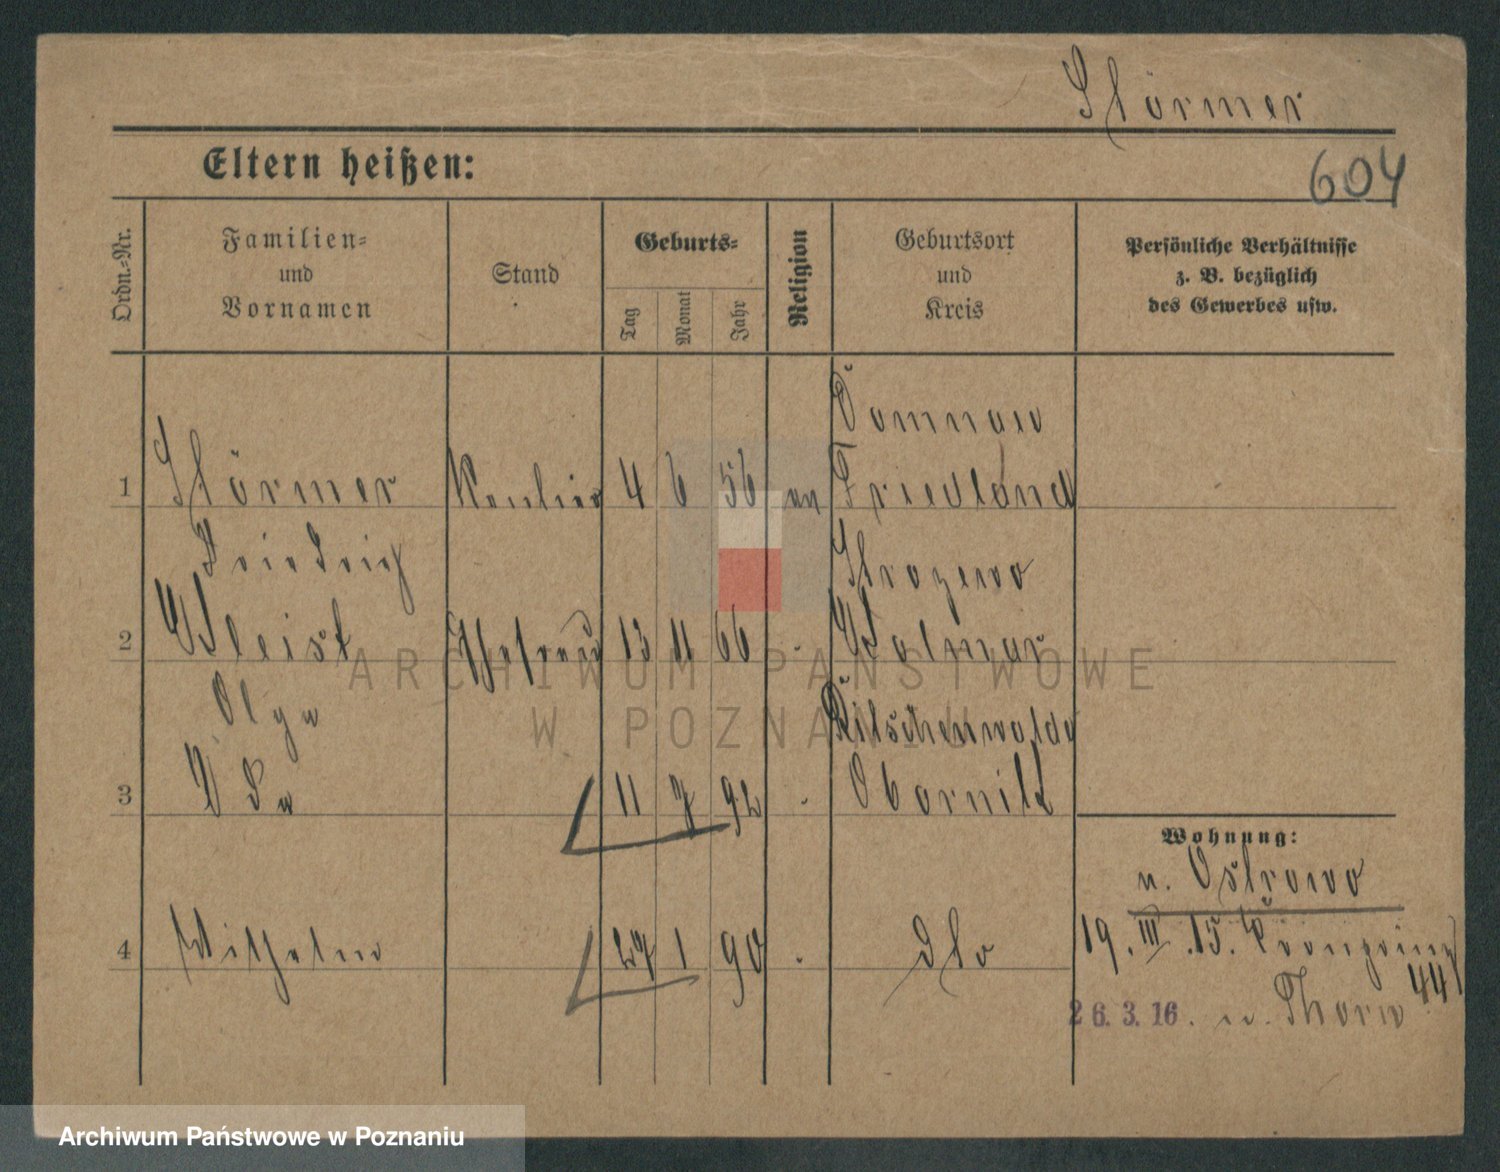 Störmer
Eltern heißen:
604
Ordn.-Nr.
Familien- und Vornamen
Stand
Geburts-
Tag
Monat
Jahr
Religion
Geburtsort und Kreis
Persönliche Verhältnisse z. B. bezüglich des Gewerbes usw.
Domnau
1 Störmer 4 6 56 ev Friedland
Friedrich Strozewo
2 Kleist Ehefrau 13 11 66 Kolmar
Olga Ritschenwalde
3 Ida 11 7 92 Obornik
Wohnung:
n. Ostrowo
4 Wilhelm 27 1 90 dto 19. III. 15. Kronprinz
44
26. 3. 16. n. Thorn
ARCHIWUM PAŃSTWOWE
W POZNANIU
Archiwum Państwowe w Poznaniu